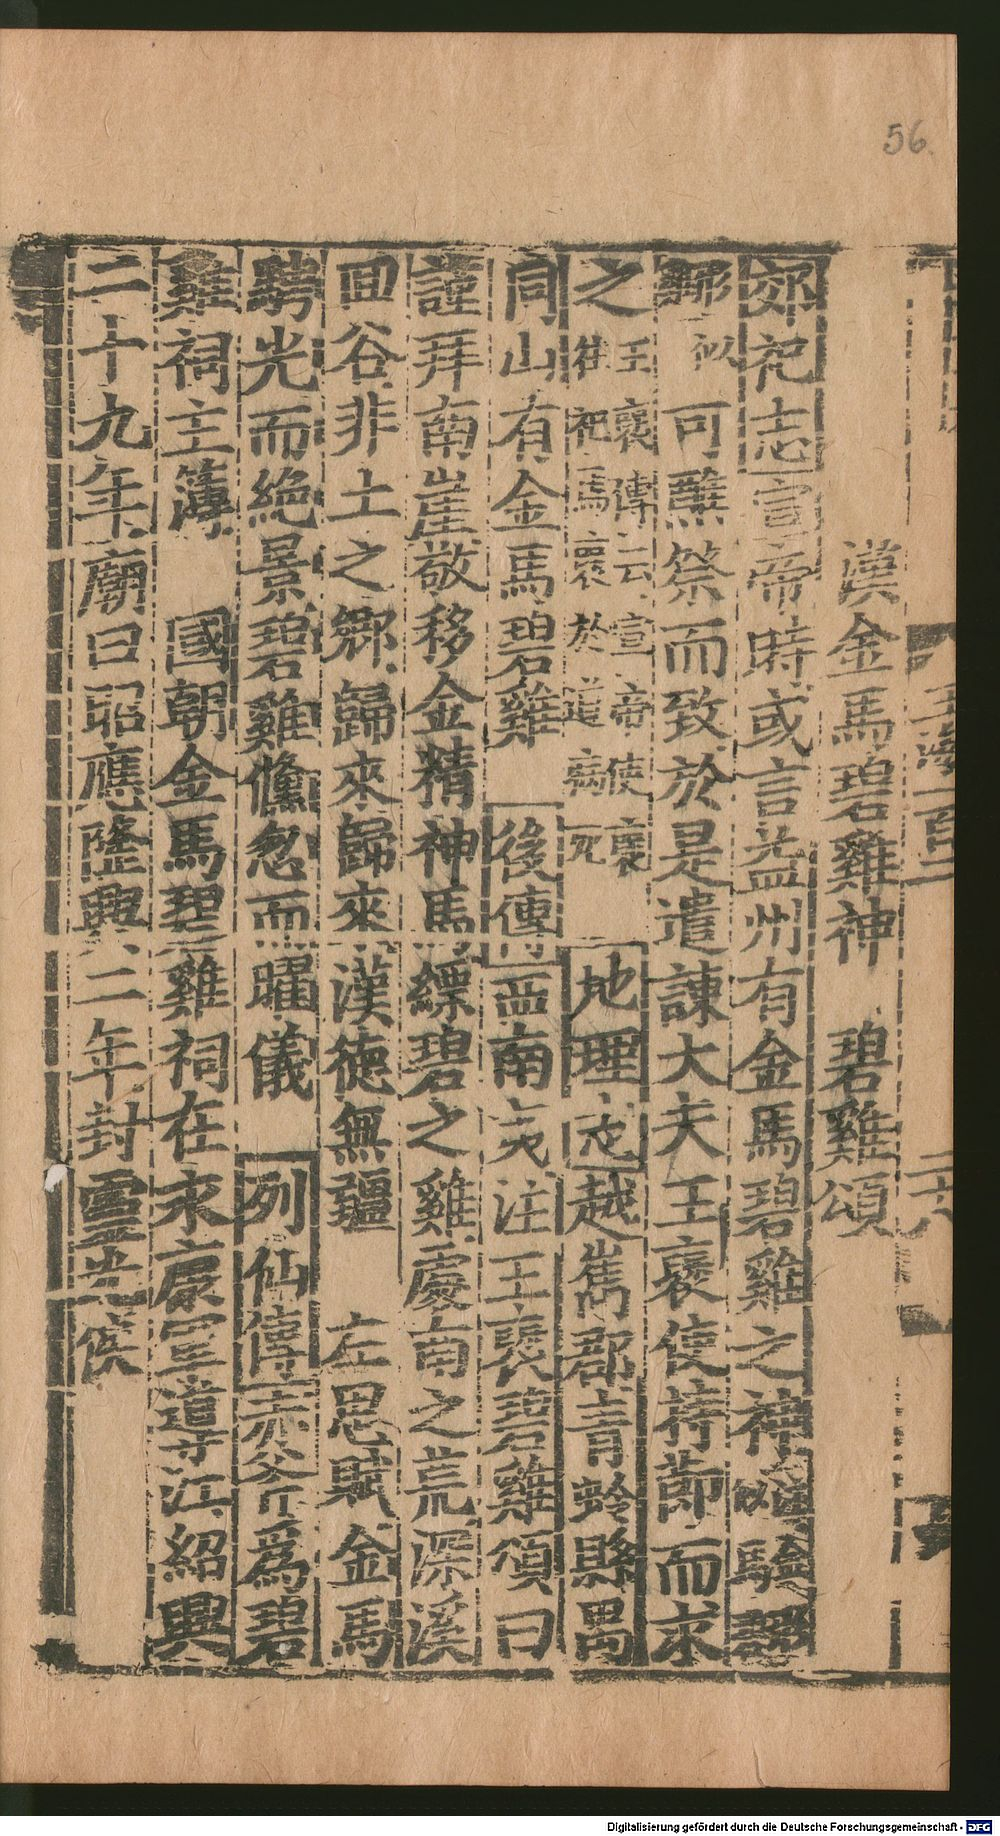 56.
漢金馬碧雞神　碧雞頌
郊祀志宣帝時或言益州有金馬碧雞之神
可醮祭而致於是遣諫大夫王褒使持節而求
之王褒傳云宣帝使褒往祀焉褒於道病死　地理志越嶲郡青蛉縣禺
同山有金馬碧雞　後傳西南夷注王褒碧雞頌曰
謹拜南崖敬移金精神馬縹碧之雞處南之荒深溪
回谷非土之鄉歸來歸來漢德無疆　左思賦金馬
騁光而絕景碧雞儵忽而曜儀　列仙傳赤斧為碧
雞祠主簿　國朝金馬碧雞祠在永康軍導江紹興
二十九年廟曰昭應隆興二年封靈光侯
Digitalisierung gefördert durch die Deutsche Forschungsgemeinschaft - DFG